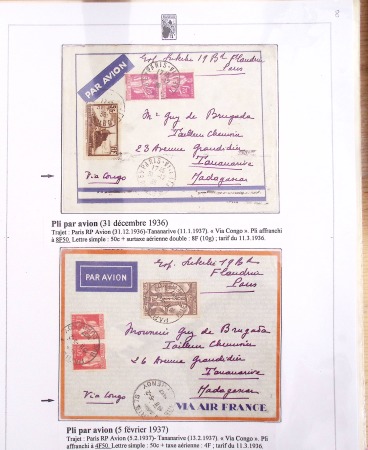 8
PAR AVION
Prof. Lukelie 19 Bd Flandrin
Paris
Mr Guy de Brugada
Tailleur Chemisier
23 Avenue Grandidier
Tananarive
Madagascar
Via Congo
Pli par avion (31 décembre 1936)
Trajet : Paris RP Avion (31.12.1936)-Tananarive (11.1.1937). « Via Congo ». Pli affranchi
à 8F50. Lettre simple : 50c + surtaxe aérienne double : 8F (10g) ; tarif du 11.3.1936.
PAR AVION
Flandrin
Paris
Monsieur Guy de Brugada
Tailleur Chemisier
26 Avenue Grandidier
Tananarive
Madagascar
Via Congo
VIA AIR FRANCE
Pli par avion (5 février 1937)
Trajet : Paris RP Avion (5.2.1937)- Tananarive (13.2.1937). « Via Congo ». Pli
affranchi à 4F50. Lettre simple : 50c + taxe aérienne : 4F ; tarif du 11.3.1936.